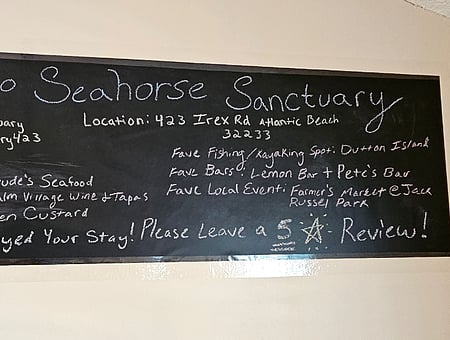 o Seahorse Sanctuary
uary
Location: 423 Irex Rd Atlantic Beach
ry423
32233
Fave Fishing/Kayaking Spot: Dutton Island
Fave Bars: Lemon Bar + Pete's Bar
ude's Seafood
Fave Local Event: Farmer's Market @ Jack
alm Village Wine & Tapas
Russel Park
en Custard
yed Your Stay! Please Leave a 5 Review!